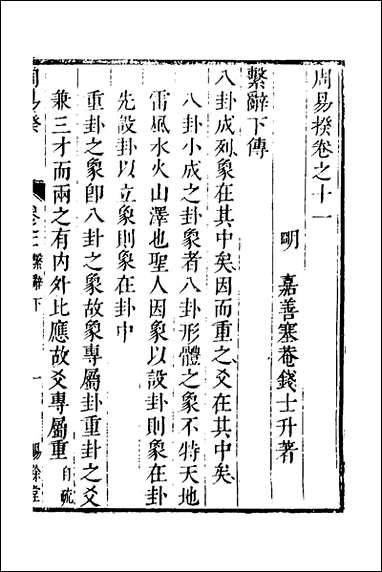 周易揆卷之十一
明　嘉善塞菴錢士升著
繫辭下傳
八卦成列象在其中矣因而重之爻在其中矣
八卦小成之卦象者八卦形體之象不特天地
雷風水火山澤也聖人因象以設卦則象在卦
先設卦以立象則象在卦中
重卦之象卽八卦之象故象專屬卦重卦之爻
兼三才而兩之有內外比應故爻專屬重　自疏
周易揆　卷之　繫辭下　一　賜餘堂